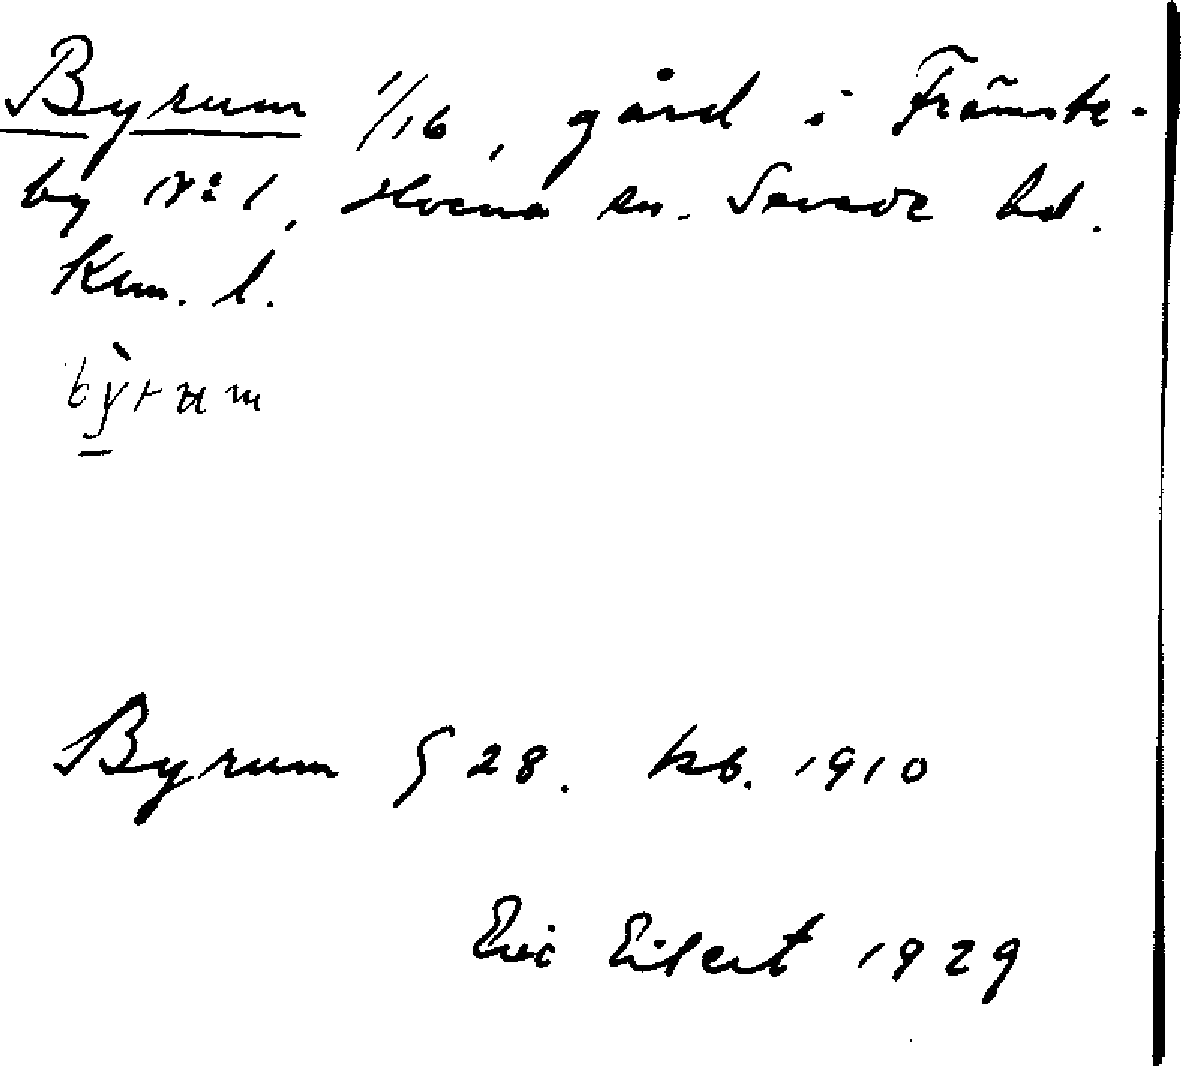 Byrum 1/16, gård i Främste-
by No: 1, Horna sn. Sevede hd.
Klm. l.
bỳrum
Byrum § 28. kb. 1910
Eric Eilert 1929